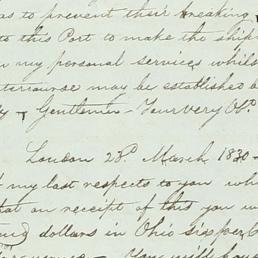 as to prevent their breaking
to this Port to make the ship
in my personal services whils
tercourse may be established b
& Gentlemen Your very Ob.
London 23.d March 1830
my last respects to you wh
that on receipt of this you w
dollars in Ohio sixper C